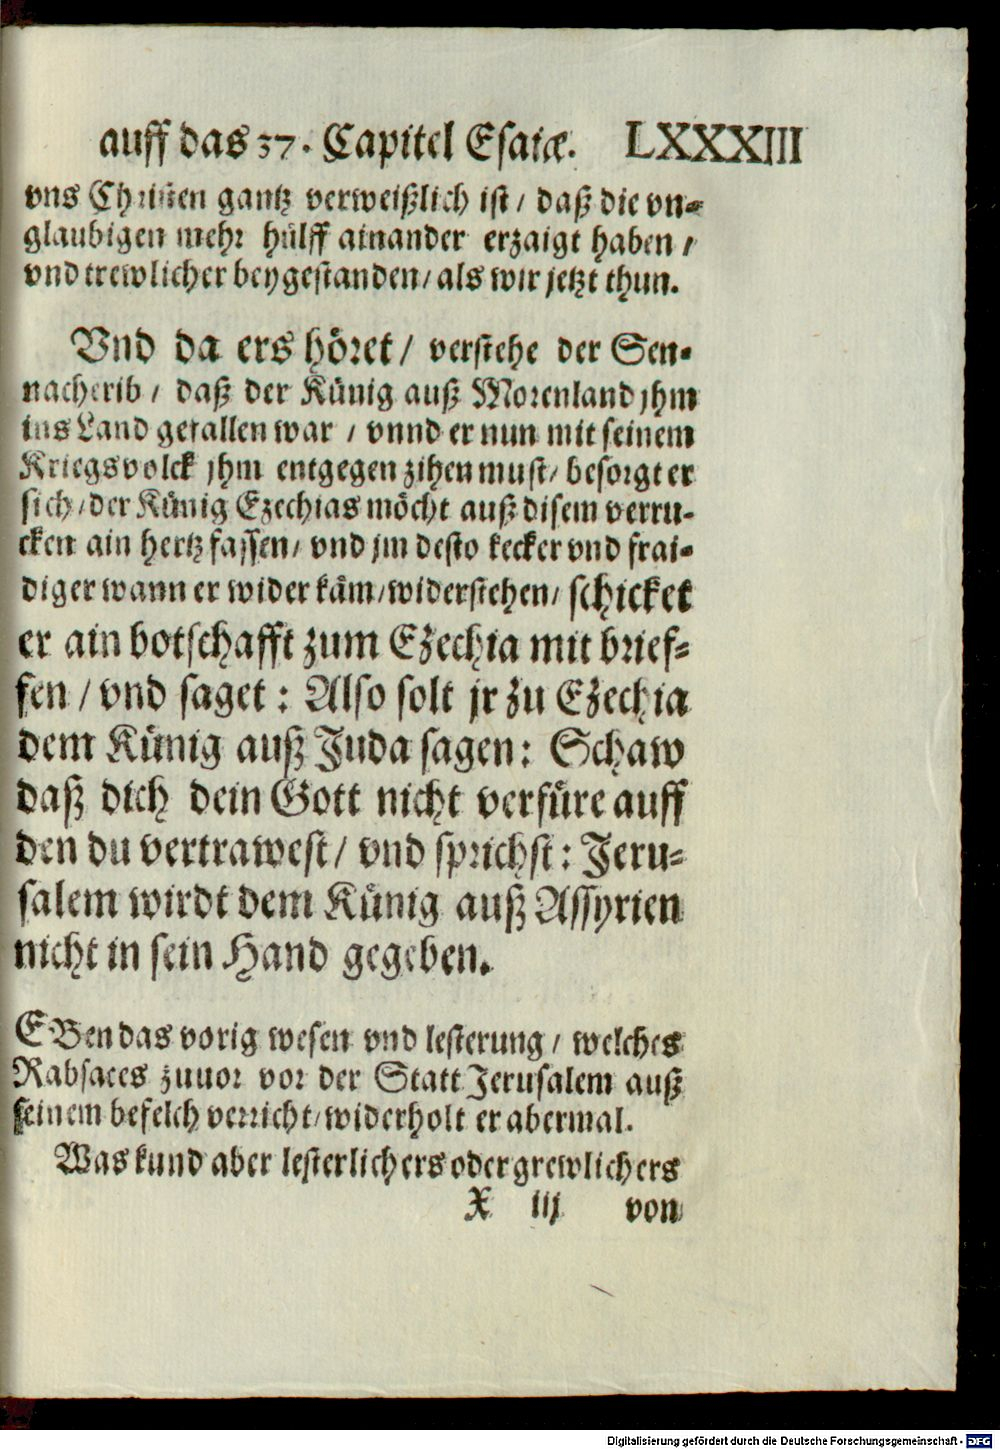 auff das 37. Capitel Esaiæ. LXXXIII
vns Christen gantz verweißlich ist / daß die vn-
glaubigen mehr hülff ainander erzaigt haben /
vnd trewlicher beygestanden / als wir jetzt thun.
Vnd da ers höret / verstehe der Sen-
nacherib / daß der Künig auß Morenland jhm
ins Land gefallen war / vnnd er nun mit seinem
Kriegsvolck jhm entgegen zihen must / besorgt er
sich / der Künig Ezechias möcht auß disem verru-
cken ain hertz fassen / vnd jm desto kecker vnd frai-
diger wann er wider käm / widerstehen / schicket
er ain botschafft zum Ezechia mit brief-
fen / vnd saget : Also solt jr zu Ezechia
dem Künig auß Juda sagen : Schaw
daß dich dein Gott nicht verfüre auff
den du vertrawest / vnd sprichst : Jeru-
salem wirdt dem Künig auß Assyrien
nicht in sein Hand gegeben.
EBen das vorig wesen vnd lesterung / welches
Rabsaces zuuor vor der Statt Jerusalem auß
seinem befelch verricht / widerholt er abermal.
Was kund aber lesterlichers oder grewlichers
X iij von
Digitalisierung gefördert durch die Deutsche Forschungsgemeinschaft - DFG